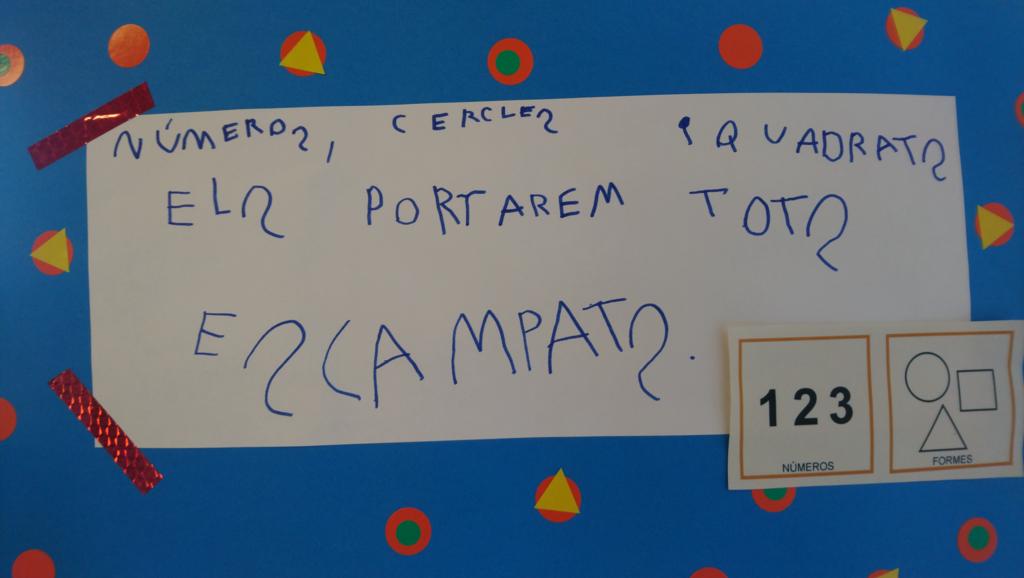 NÚMEROS, CERCLES I QUADRATS
ELS PORTAREM TOTS
ESCAMPATS.
1 2 3
NÚMEROS
FORMES